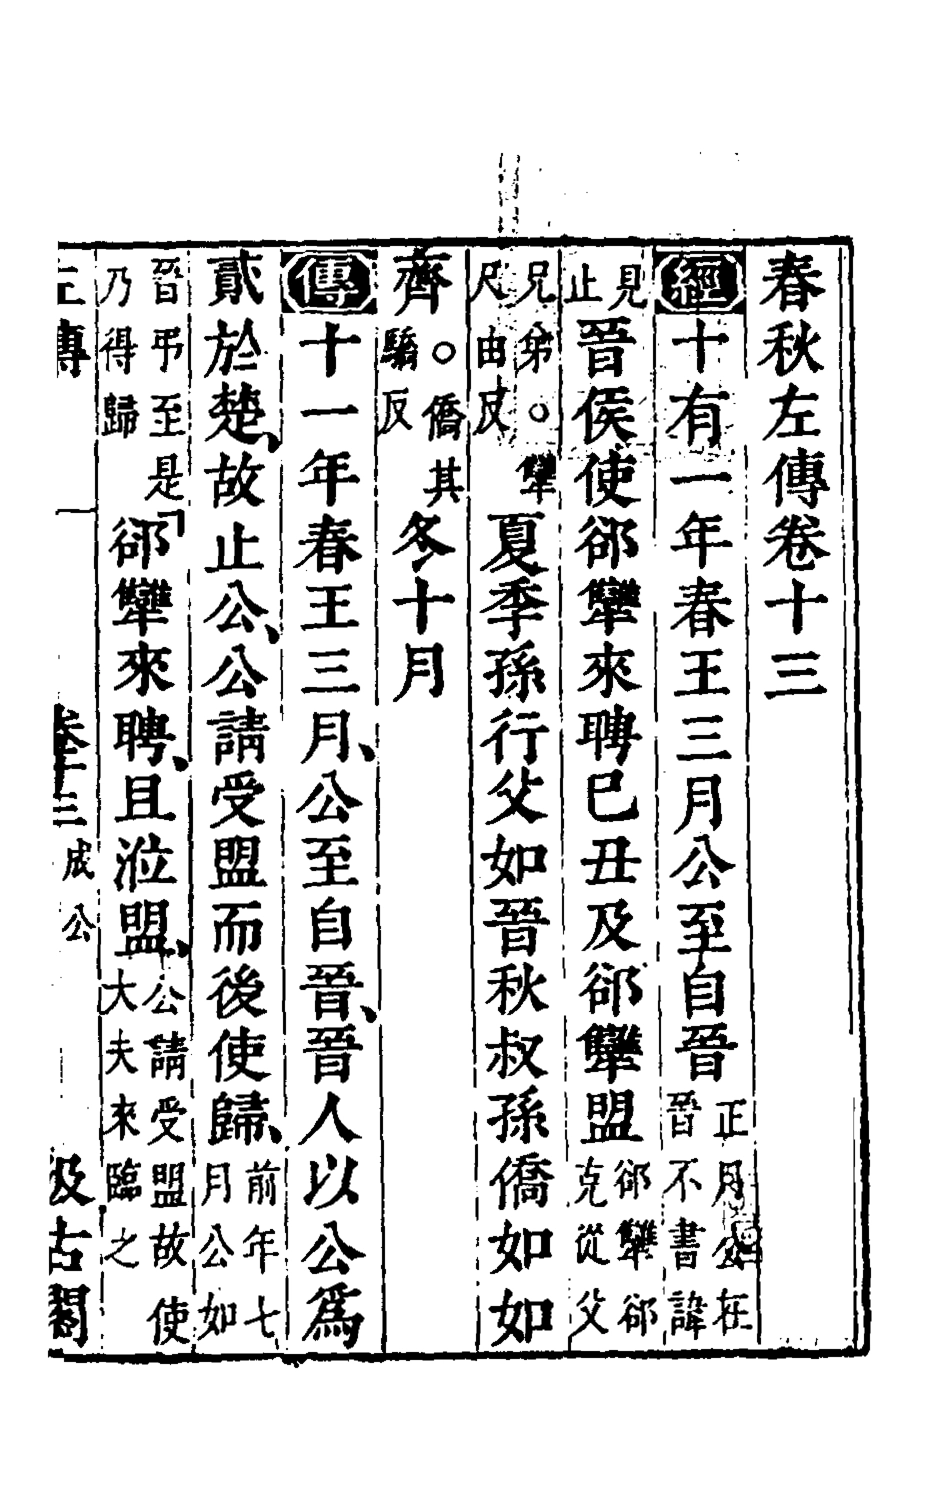 春秋左傳卷十三
經十有一年春王三月公至自晉正月公在晉不書諱
見止晉侯使郤犫來聘巳丑及郤犫盟郤犫郤克從父
兄弟。犫尺由反夏季孫行父如晉秋叔孫僑如如
齊。僑其驕反冬十月
傳十一年春王三月、公至自晉、晉人以公爲
貳於楚、故止公、公請受盟而後使歸、前年七月公如
晉弔至是乃得歸郤犫來聘、且涖盟、公請受盟故使大夫來臨之
左傳 卷十三 成公 一 汲古閣